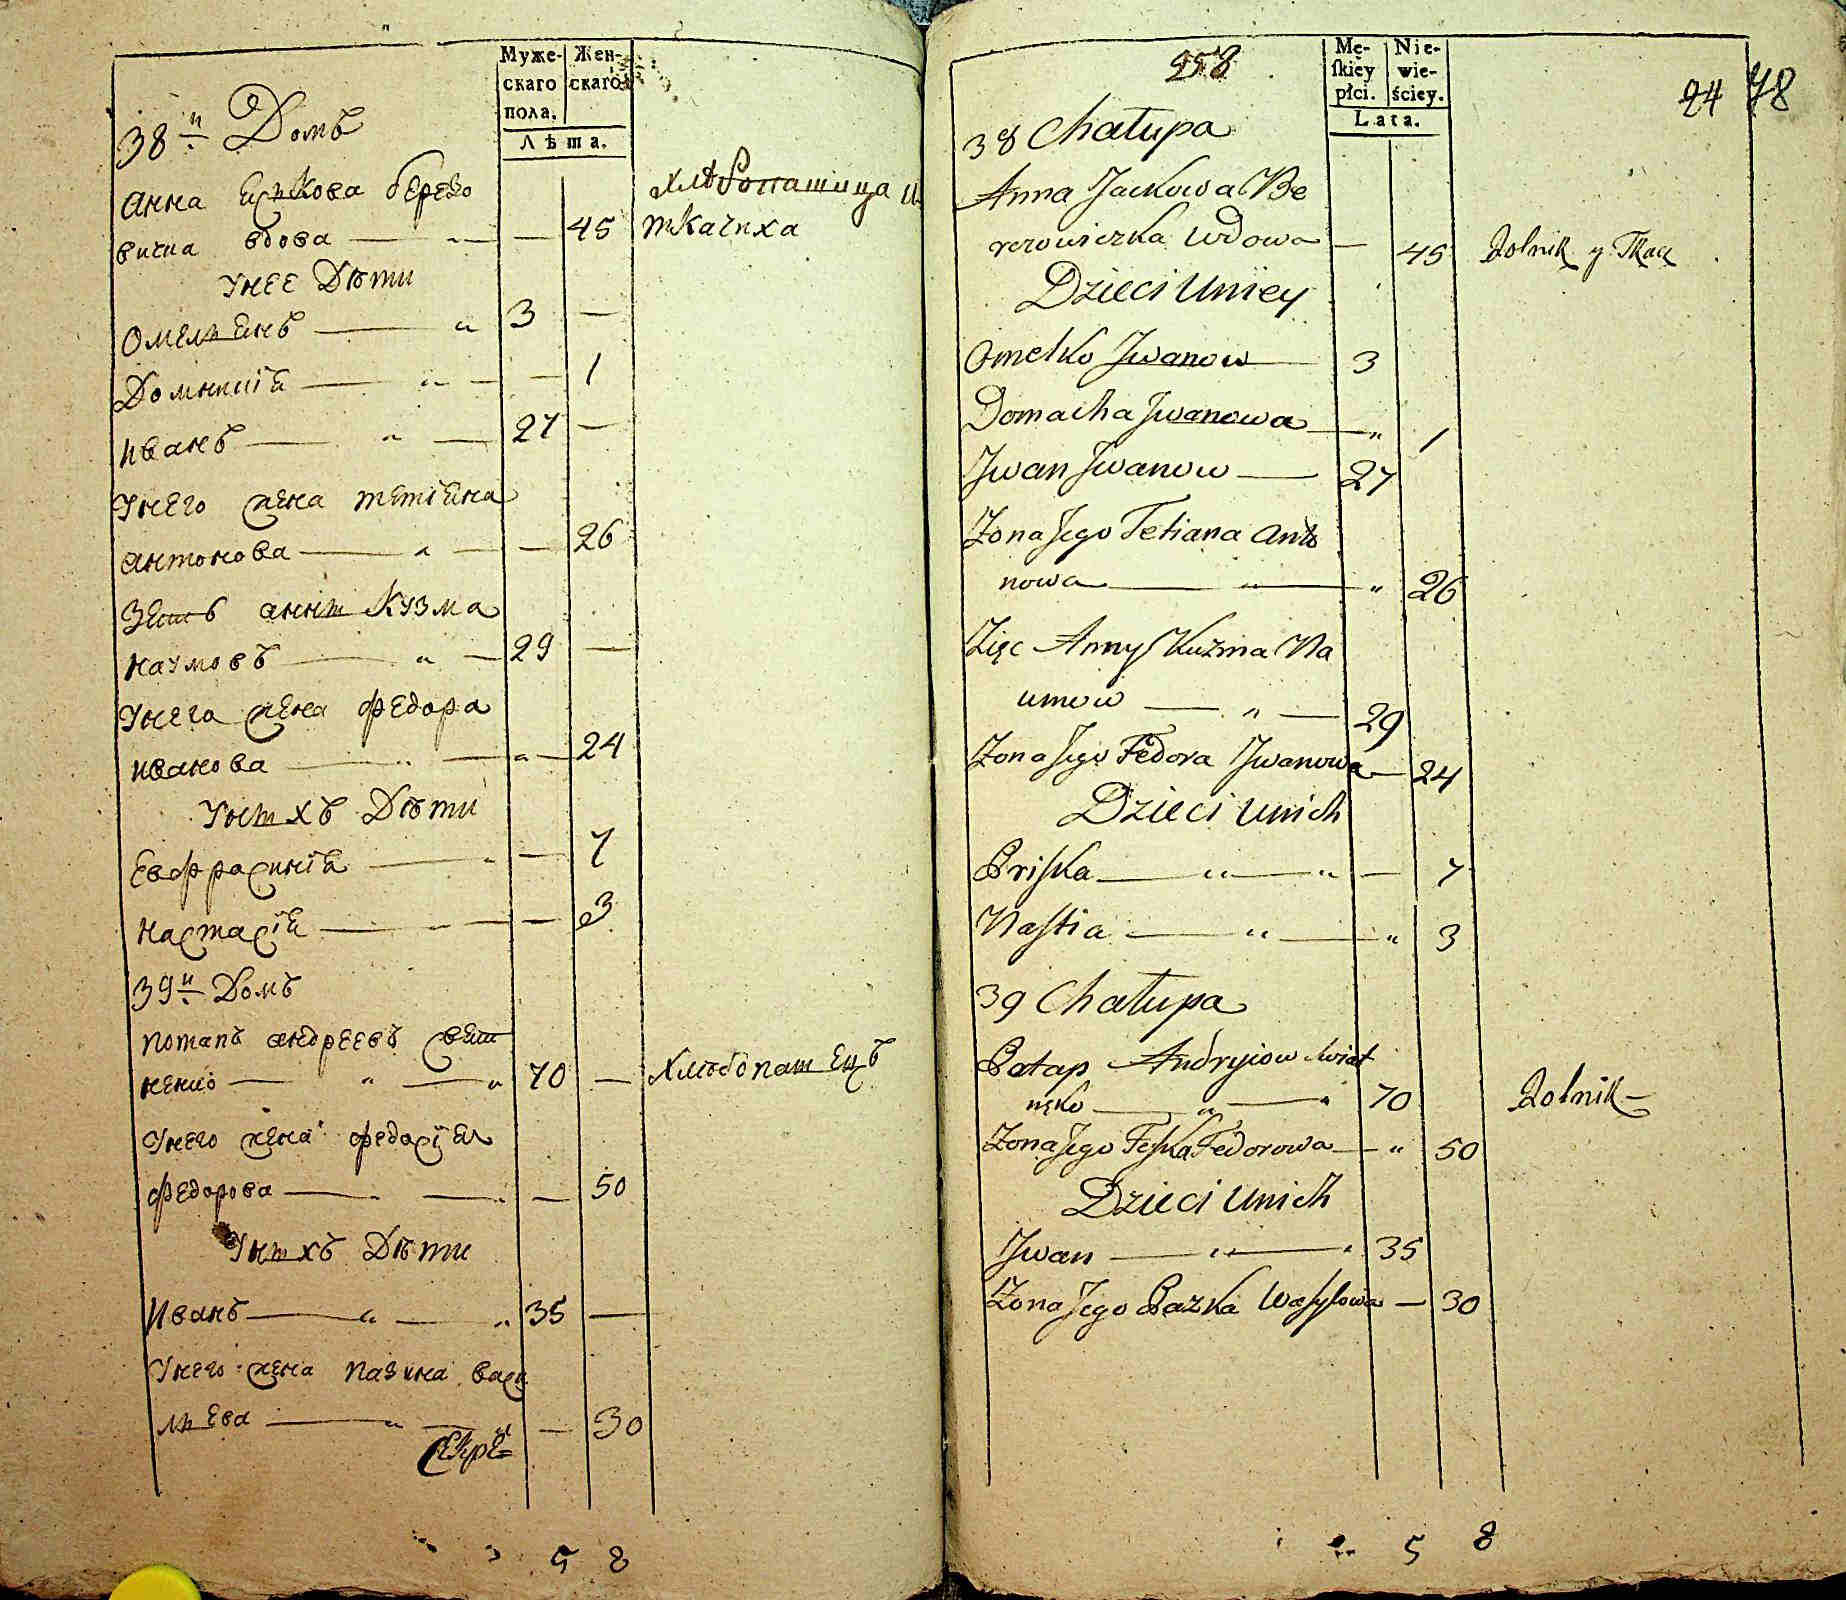 Муже-
скаго
пола.
Жен-
скаго
Лѣта.
38й Домъ
Анна Яцкова берево
вична вдова — 45
хлѣбопашица и
ткачиха
У нее Дѣти
Омелянъ — 3 —
Домникія — 1
Иванъ — 27 —
У него жена тетіяна
антонова — 26
Зять анны Кузма
наумовъ — 29 —
У него жена федора
иванова — 24
У нихъ Дѣти
Евфрасинія — 7
настасія — 3
39й Домъ
потапъ андреевъ свят
ненко — 70 — хлѣбопашецъ
У него жена федосія
федорова — 50
У нихъ Дѣти
Иванъ — 35 —
У него жена пазина васи
льева — 30
5 8
558
Mę-
skiey
płci.
Nie-
wie-
ściey.
Lata.
24 78
38 Chałupa
Anna Jackowa Be
rezowiczka Wdowa — 45 Rolnik y Tkacz
Dzieci Uniey
Omelko Jwanow 3
Domacha Jwanowa — 1
Jwan Jwanow — 27
Zona Jego Tetiana Anto
nowa — 26
Zięc Anny Kuzma Na
umow — 29
Zona Jego Fedora Jwanowa — 24
Dzieci Unich
Priska — 7
Nastia — 3
39 Chałupa
Potap Andryiow Swiat
nęko — 70 Rolnik
Zona Jego Feska Fedorowa — 50
Dzieci Unich
Jwan — 35
Zona Jego Pazka Wasylowa — 30
5 8